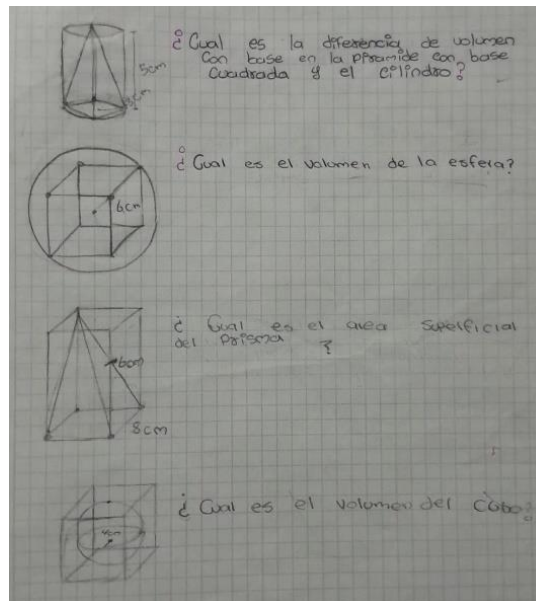 5cm
3cm
¿Cual es la diferencia de volumen
con base en la piramide con base
cuadrada y el cilindro?
¿Cual es el volumen de la esfera?
6cm
¿Cual es el area superficial
del prisma ?
6cm
8cm
¿Cual es el volumen del cubo?
4cm